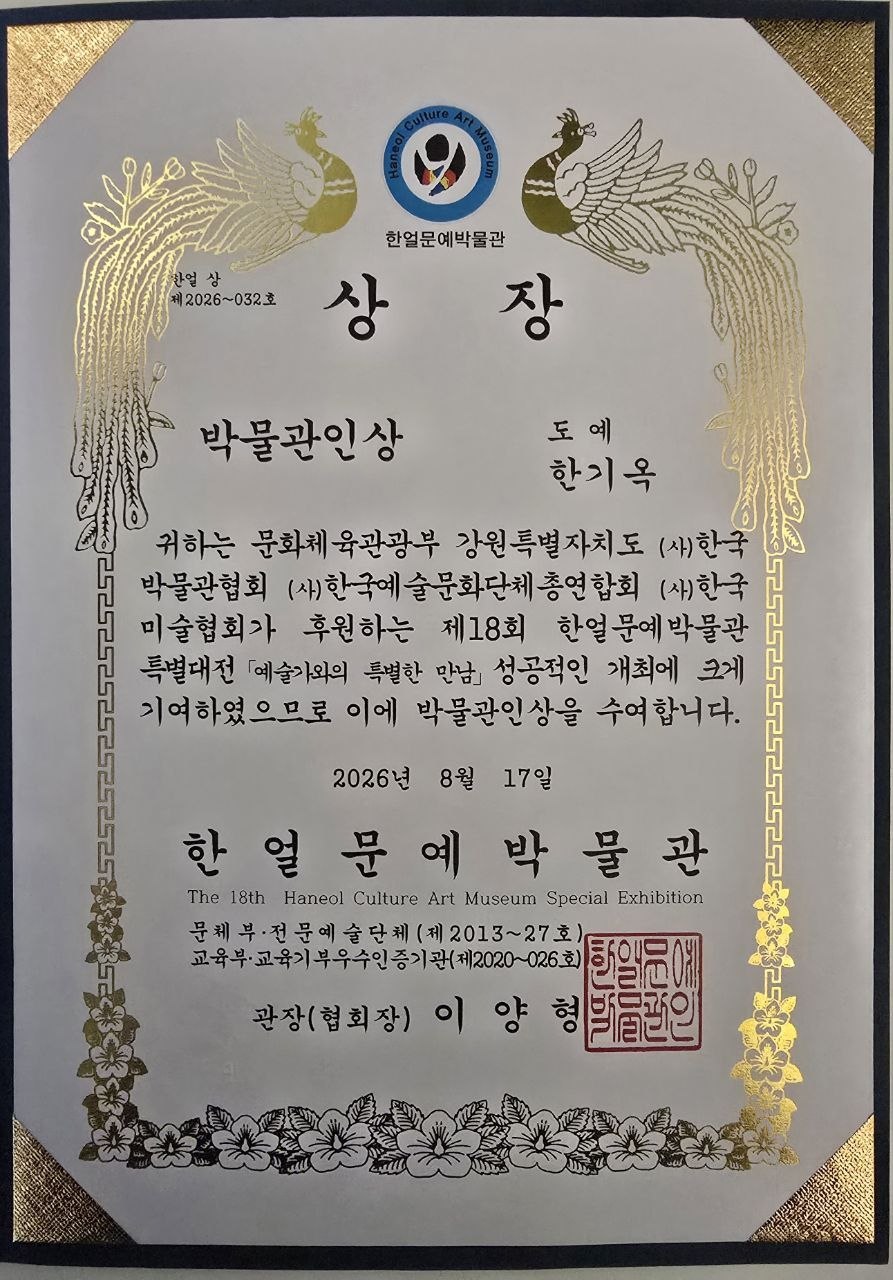 Haneol Culture Art Museum
한얼문예박물관
한얼 상
제2026~032호
상 장
박물관인상
도 예
한기옥
귀하는 문화체육관광부 강원특별자치도 (사)한국
박물관협회 (사)한국예술문화단체총연합회 (사)한국
미술협회가 후원하는 제18회 한얼문예박물관
특별대전 「예술가와의 특별한 만남」 성공적인 개최에 크게
기여하였으므로 이에 박물관인상을 수여합니다.
2026년 8월 17일
한 얼 문 예 박 물 관
The 18th Haneol Culture Art Museum Special Exhibition
문체부·전문예술단체(제2013~27호)
교육부·교육기부우수인증기관(제2020~026호)
관장(협회장) 이 양 형
한얼문예
박물관인